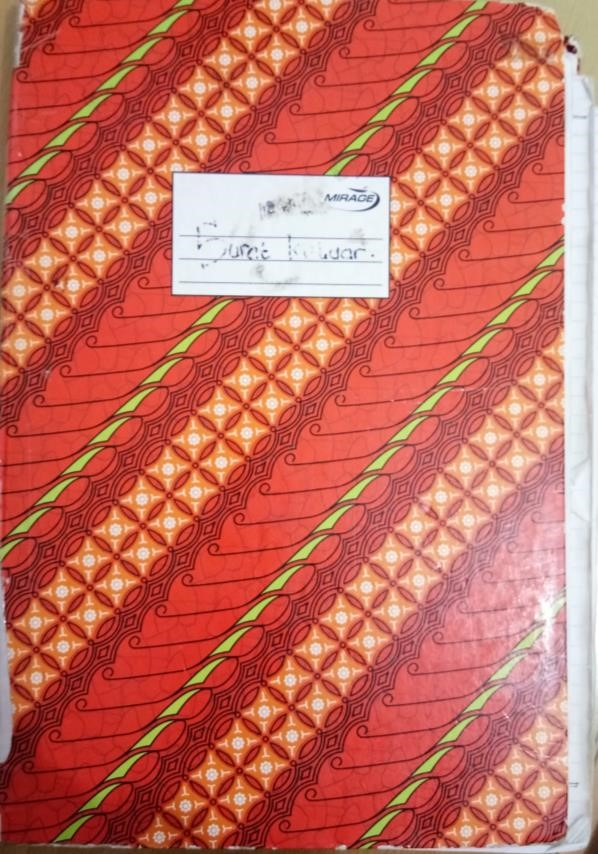 MIRAGE
Surat Keluar.